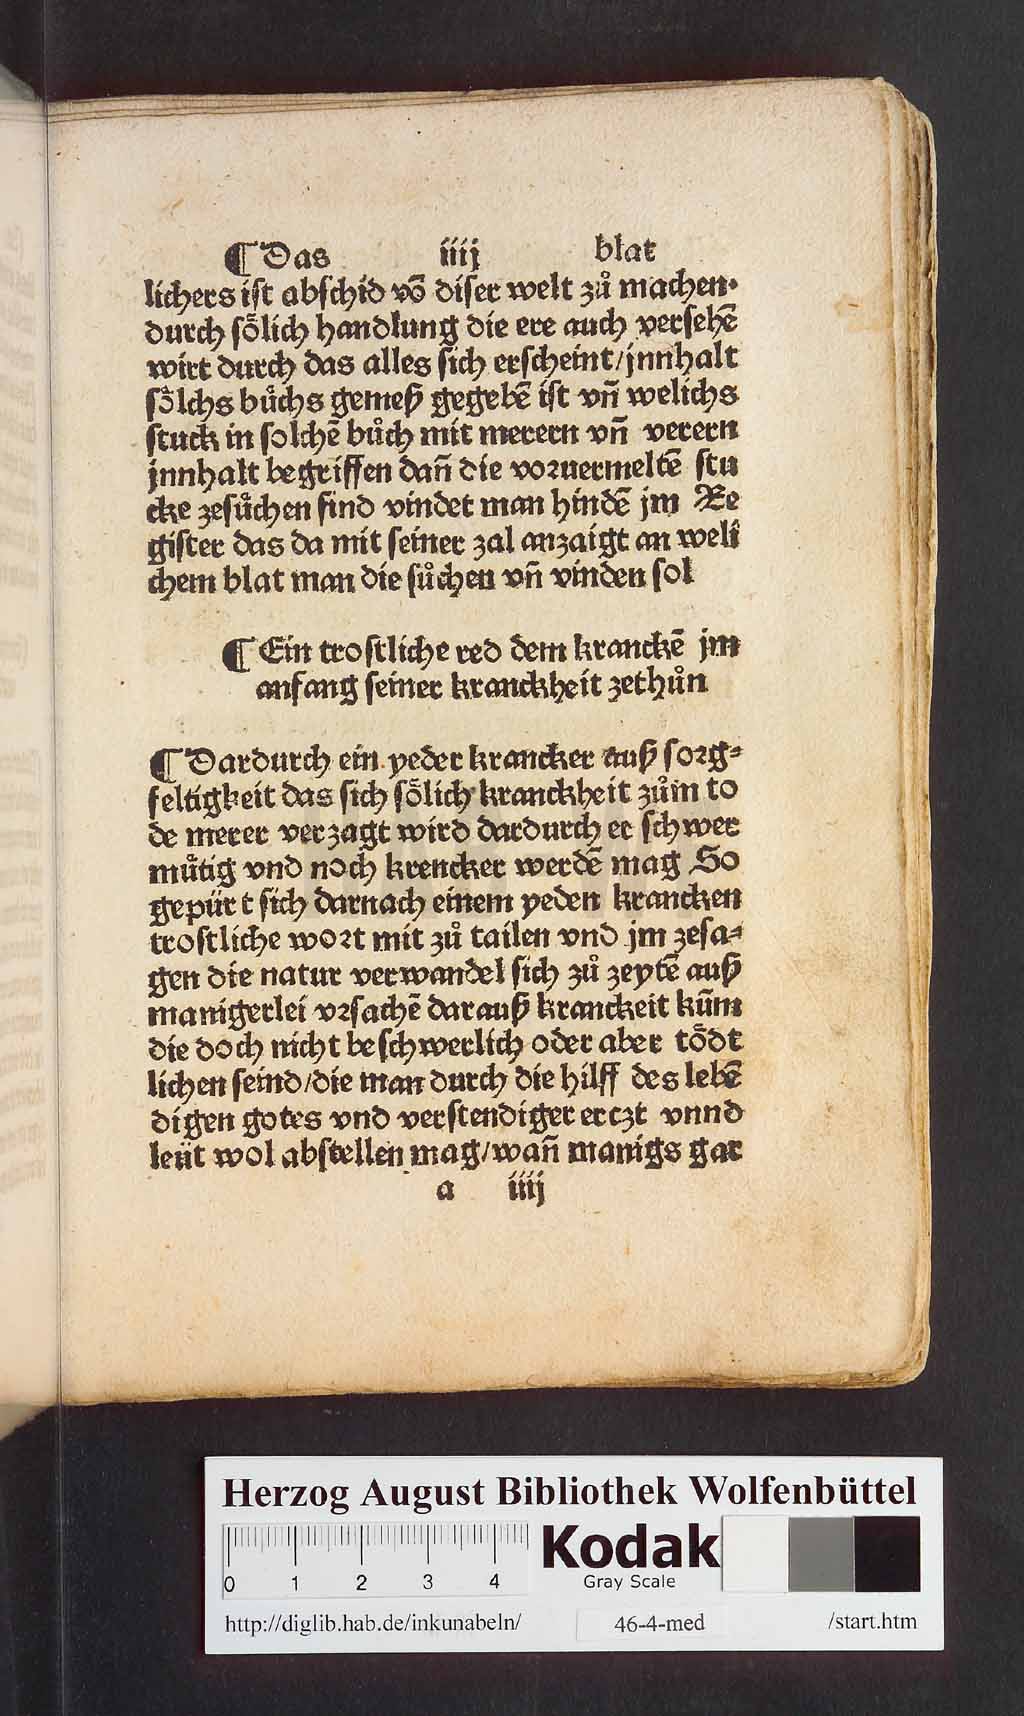 ¶ Das iiij blat
lichers ist abschid vō diser welt zů machen.
durch soͤlich handlung die ere auch versehē
wirt durch das alles sich erscheint/jnnhalt
soͤlchs buͤchs gemeß gegebē ist vn̄ welichs
stuck in solchē bůch mit merern vn̄ verern
jnnhalt begriffen dan̄ die voruermeltē stu
cke zesůchen sind vindet man hindē jm Re
gister das da mit seiner zal anzaigt an weli
chem blat man die sůchen vn̄ vinden sol
¶ Ein trostliche red dem kranckē jm
anfang seiner kranckheit zethůn
¶ Dardurch ein yeder krancker auß sorg⸗
feltigkeit das sich soͤlich kranckheit zům to
de merer verzagt wird dardurch er schwer
muͤtig vnd noch krencker werdē mag So
gepürt sich darnach einem yeden krancken
trostliche wort mit zů tailen vnd jm zesa⸗
gen die natur verwandel sich zů zeytē auß
manigerlei vrsachē darauß kranckeit kūm
die doch nicht beschwerlich oder aber toͤdt
lichen seind/die man durch die hilff des lebē
digen gotes vnd verstendiger erczt vnnd
leüt wol abstellen mag/wan̄ manigs gar
a iiij
Herzog August Bibliothek Wolfenbüttel
0 1 2 3 4
Kodak
Gray Scale
http://diglib.hab.de/inkunabeln/ 46-4-med /start.htm